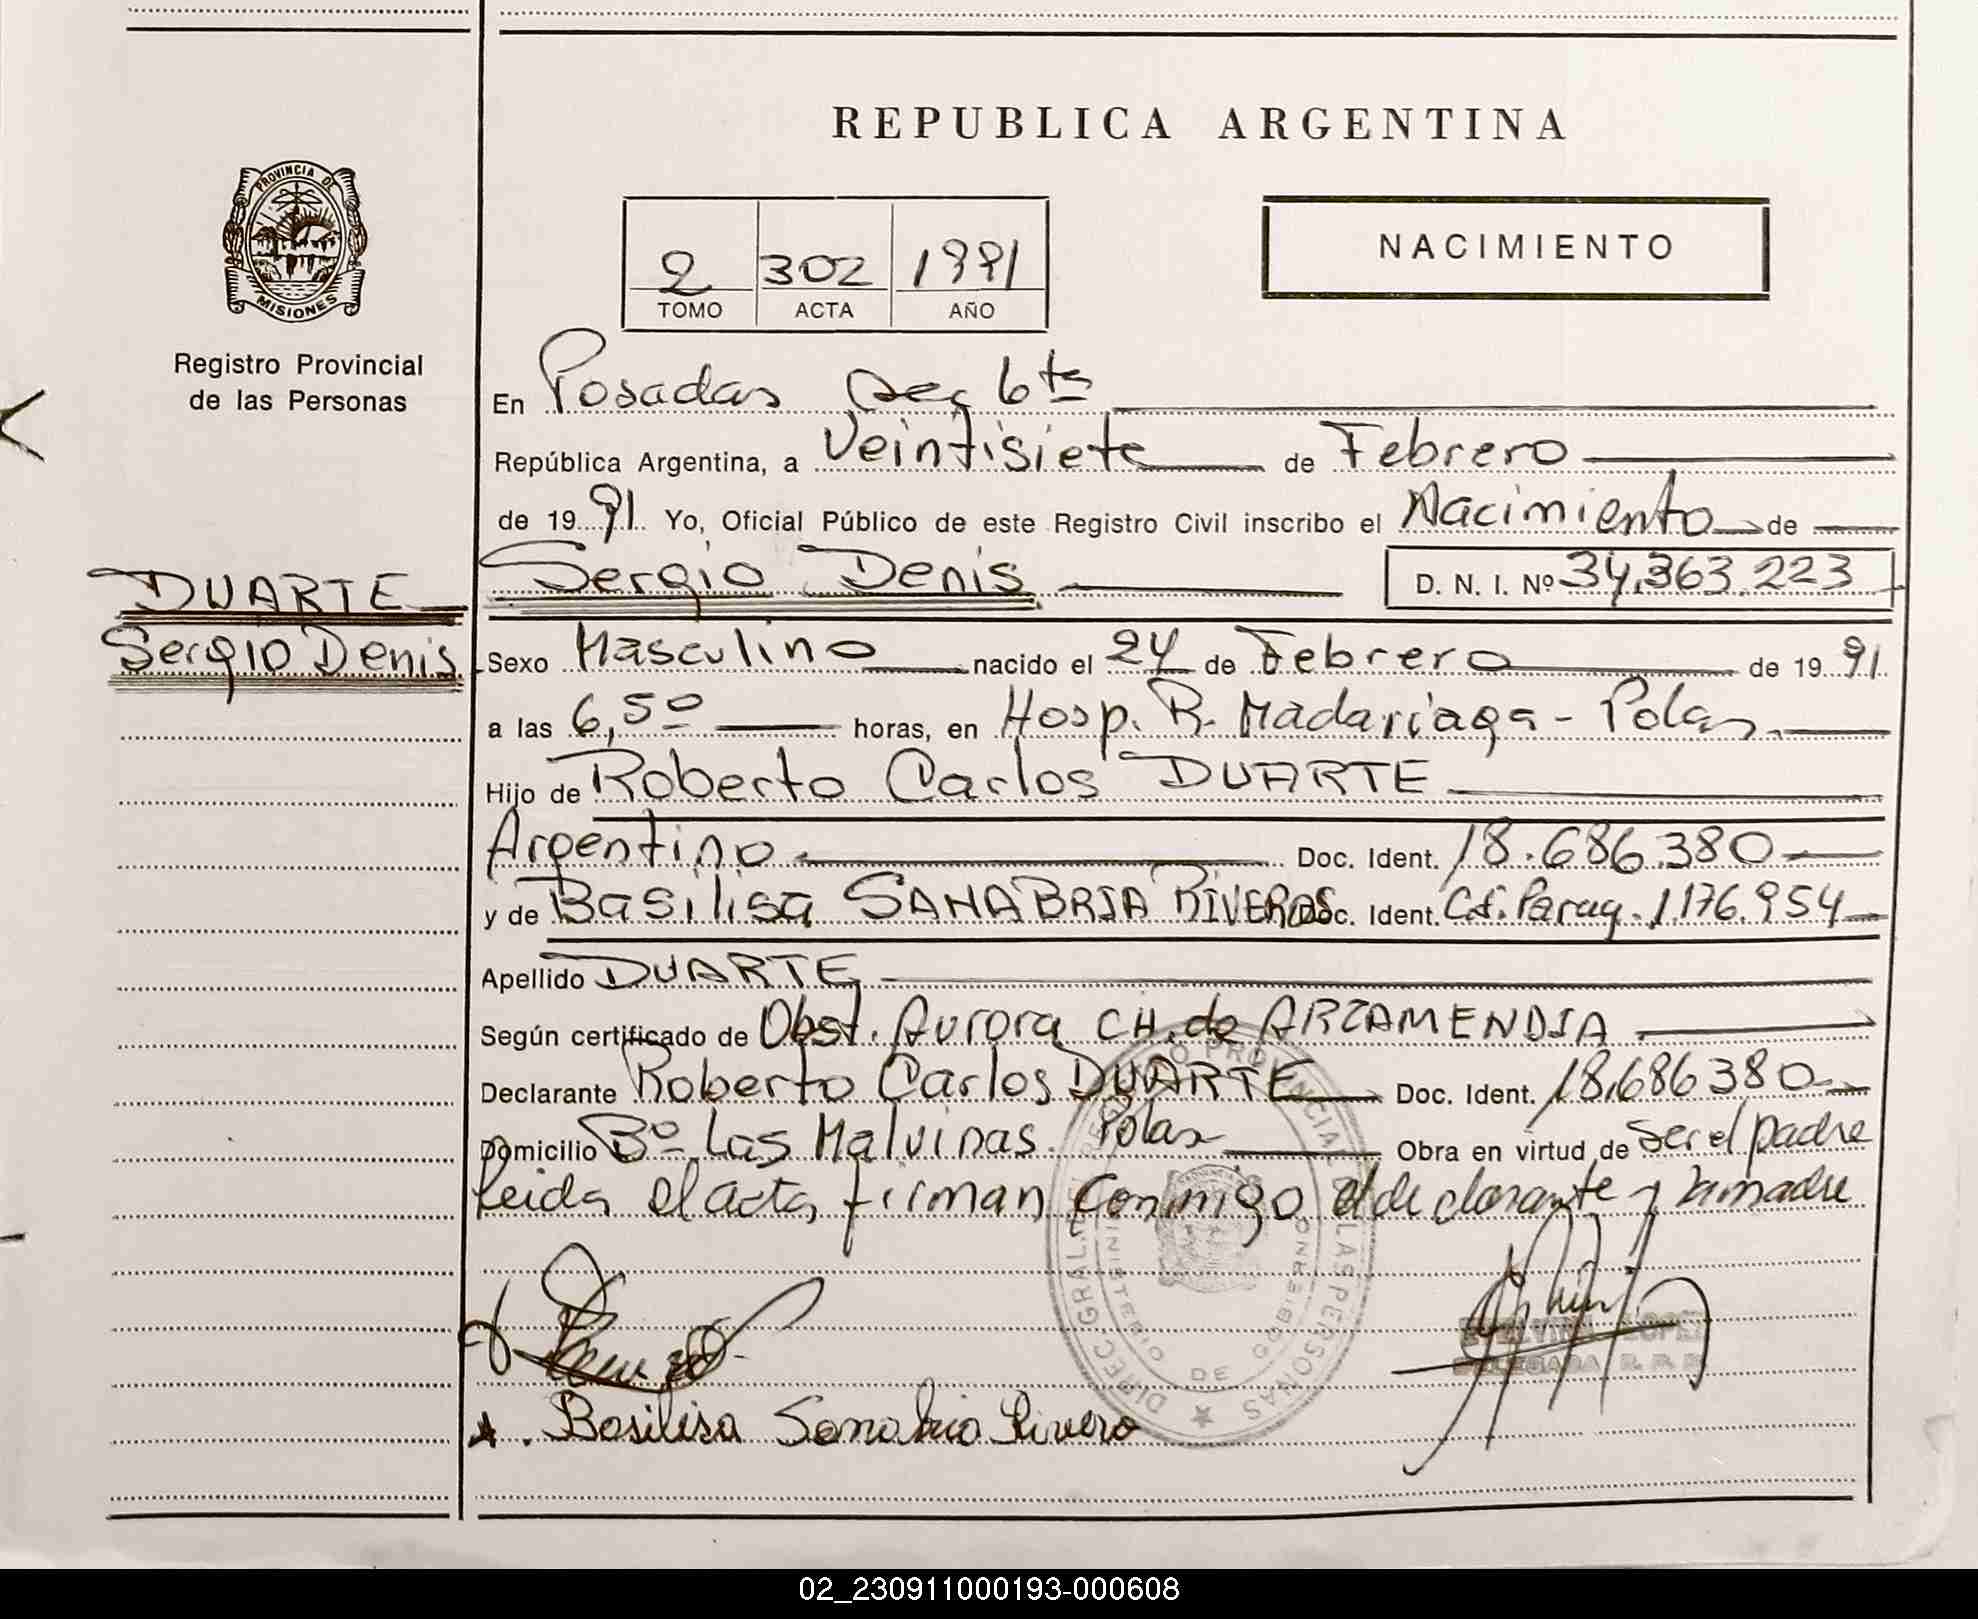 REPUBLICA ARGENTINA
PROVINCIA DE MISIONES
Registro Provincial
de las Personas
2 302 1991
TOMO ACTA AÑO
NACIMIENTO
En Posadas Sec 6ta
República Argentina, a Veintisiete de Febrero
de 1991 Yo, Oficial Público de este Registro Civil inscribo el Nacimiento de
DUARTE
Sergio Denis
Sergio Denis D. N. I. Nº 34.363.223
Sexo Masculino nacido el 24 de Febrero de 1991
a las 6,50 horas, en Hosp. R. Madariaga - Pdas
Hijo de Roberto Carlos DUARTE
Argentino Doc. Ident. 18.686.380
y de Basilisa SANABRIA RIVEROS Doc. Ident. C.I. Parag. 1.176.954
Apellido DUARTE
Según certificado de Obst. Aurora CH. de ARZAMENDIA
Declarante Roberto Carlos DUARTE Doc. Ident. 18.686380
Domicilio Bº Las Malvinas. Pdas Obra en virtud de ser el padre
Leida el acta, firman conmigo el declarante y la madre
DIREC. GRAL. DEL REGISTRO PROVINCIAL DE LAS PERSONAS
MINISTERIO DE GOBIERNO
Basilisa Sanabria Rivero
DELEGADA R. P. P.
02_230911000193-000608